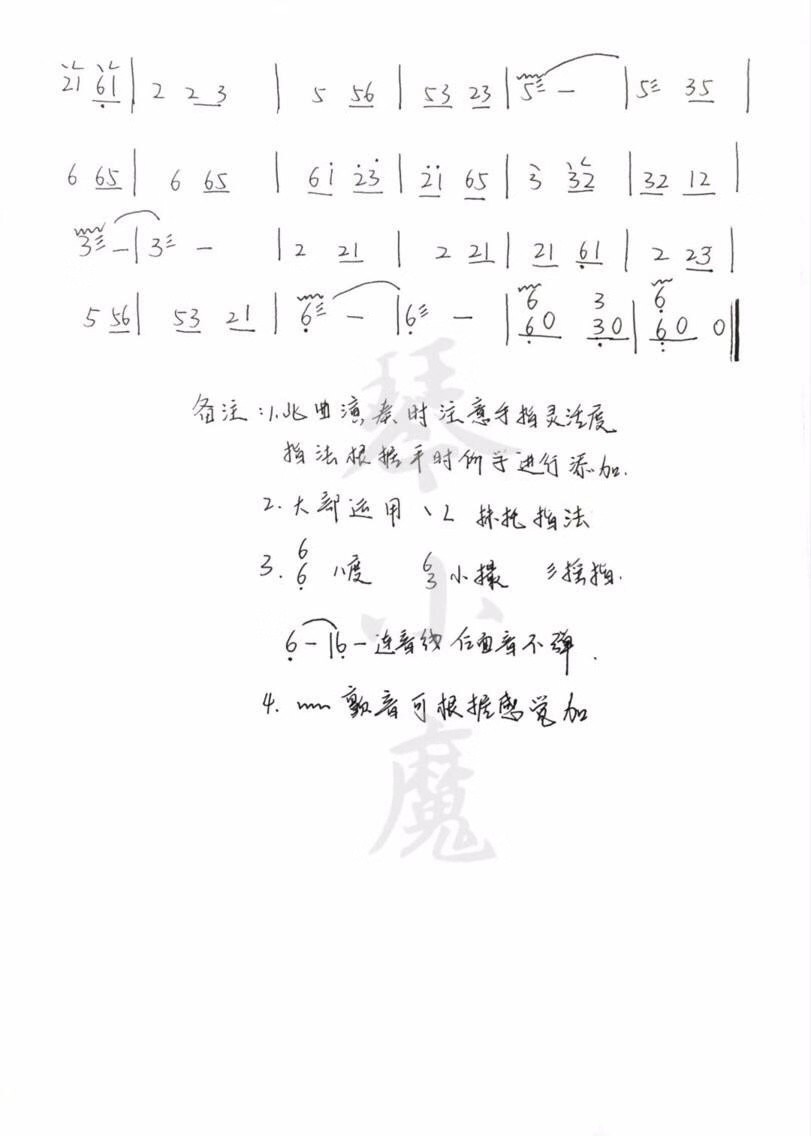 21 61 | 2 2 3 | 5 56 | 53 23 | 5 – | 5 35 |
6 65 | 6 65 | 61̇ 2̇3̇ | 2̇1̇ 65 | 3 32 | 32 12 |
3 – | 3 – | 2 21 | 2 21 | 21 6̣1 | 2 23 |
5 56 | 53 21 | 6̣ – | 6̣ – | 6 3 6
6̣0 3̣0 | 60 0
备注:1.此曲演奏时注意手指灵活度
指法根据平时仰手进行添加.
2.大部运用 丶乚 抹托指法
3. 6 6̣ 八度 6 3 小撮 彡摇指.
6̣ – | 6̣ – 连音线后面音不弹.
4. 颤音可根据感觉加
琴
小
魔